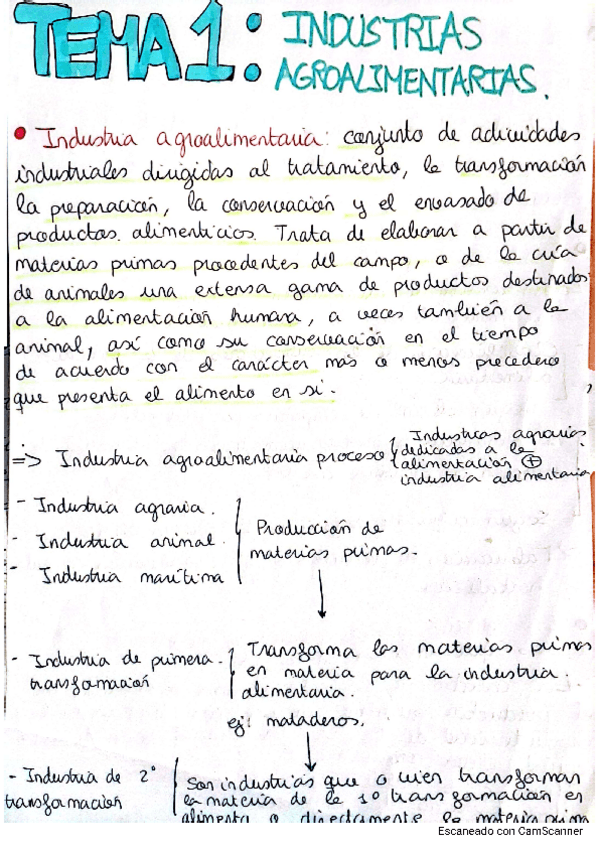 TEMA 1: INDUSTRIAS
AGROALIMENTARIAS.
• Industria agroalimentaria: conjunto de actividades
industriales dirigidas al tratamiento, la transformación
la preparación, la conservación y el envasado de
productos alimenticios. Trata de elaborar a partir de
materias primas procedentes del campo, o de la cría
de animales una extensa gama de productos destinados
a la alimentación humana, a veces también a la
animal, así como su conservación en el tiempo
de acuerdo con el carácter más o menos precedero
que presenta el alimento en sí.
=> Industria agroalimentaria proceso { Industrias agrarias
dedicadas a la
alimentación ⊕
industria alimentaria
- Industria agraria.
- Industria animal.
- Industria marítima
Producción de
materias primas.
- Industria de primera
transformación
Transforma las materias primas
en materia para la industria
alimentaria.
ej: mataderos.
- Industria de 2º
transformación
Son industrias que o bien transforman
la materia de la 1º transformación en
alimento o directamente la materia prima
Escaneado con CamScanner